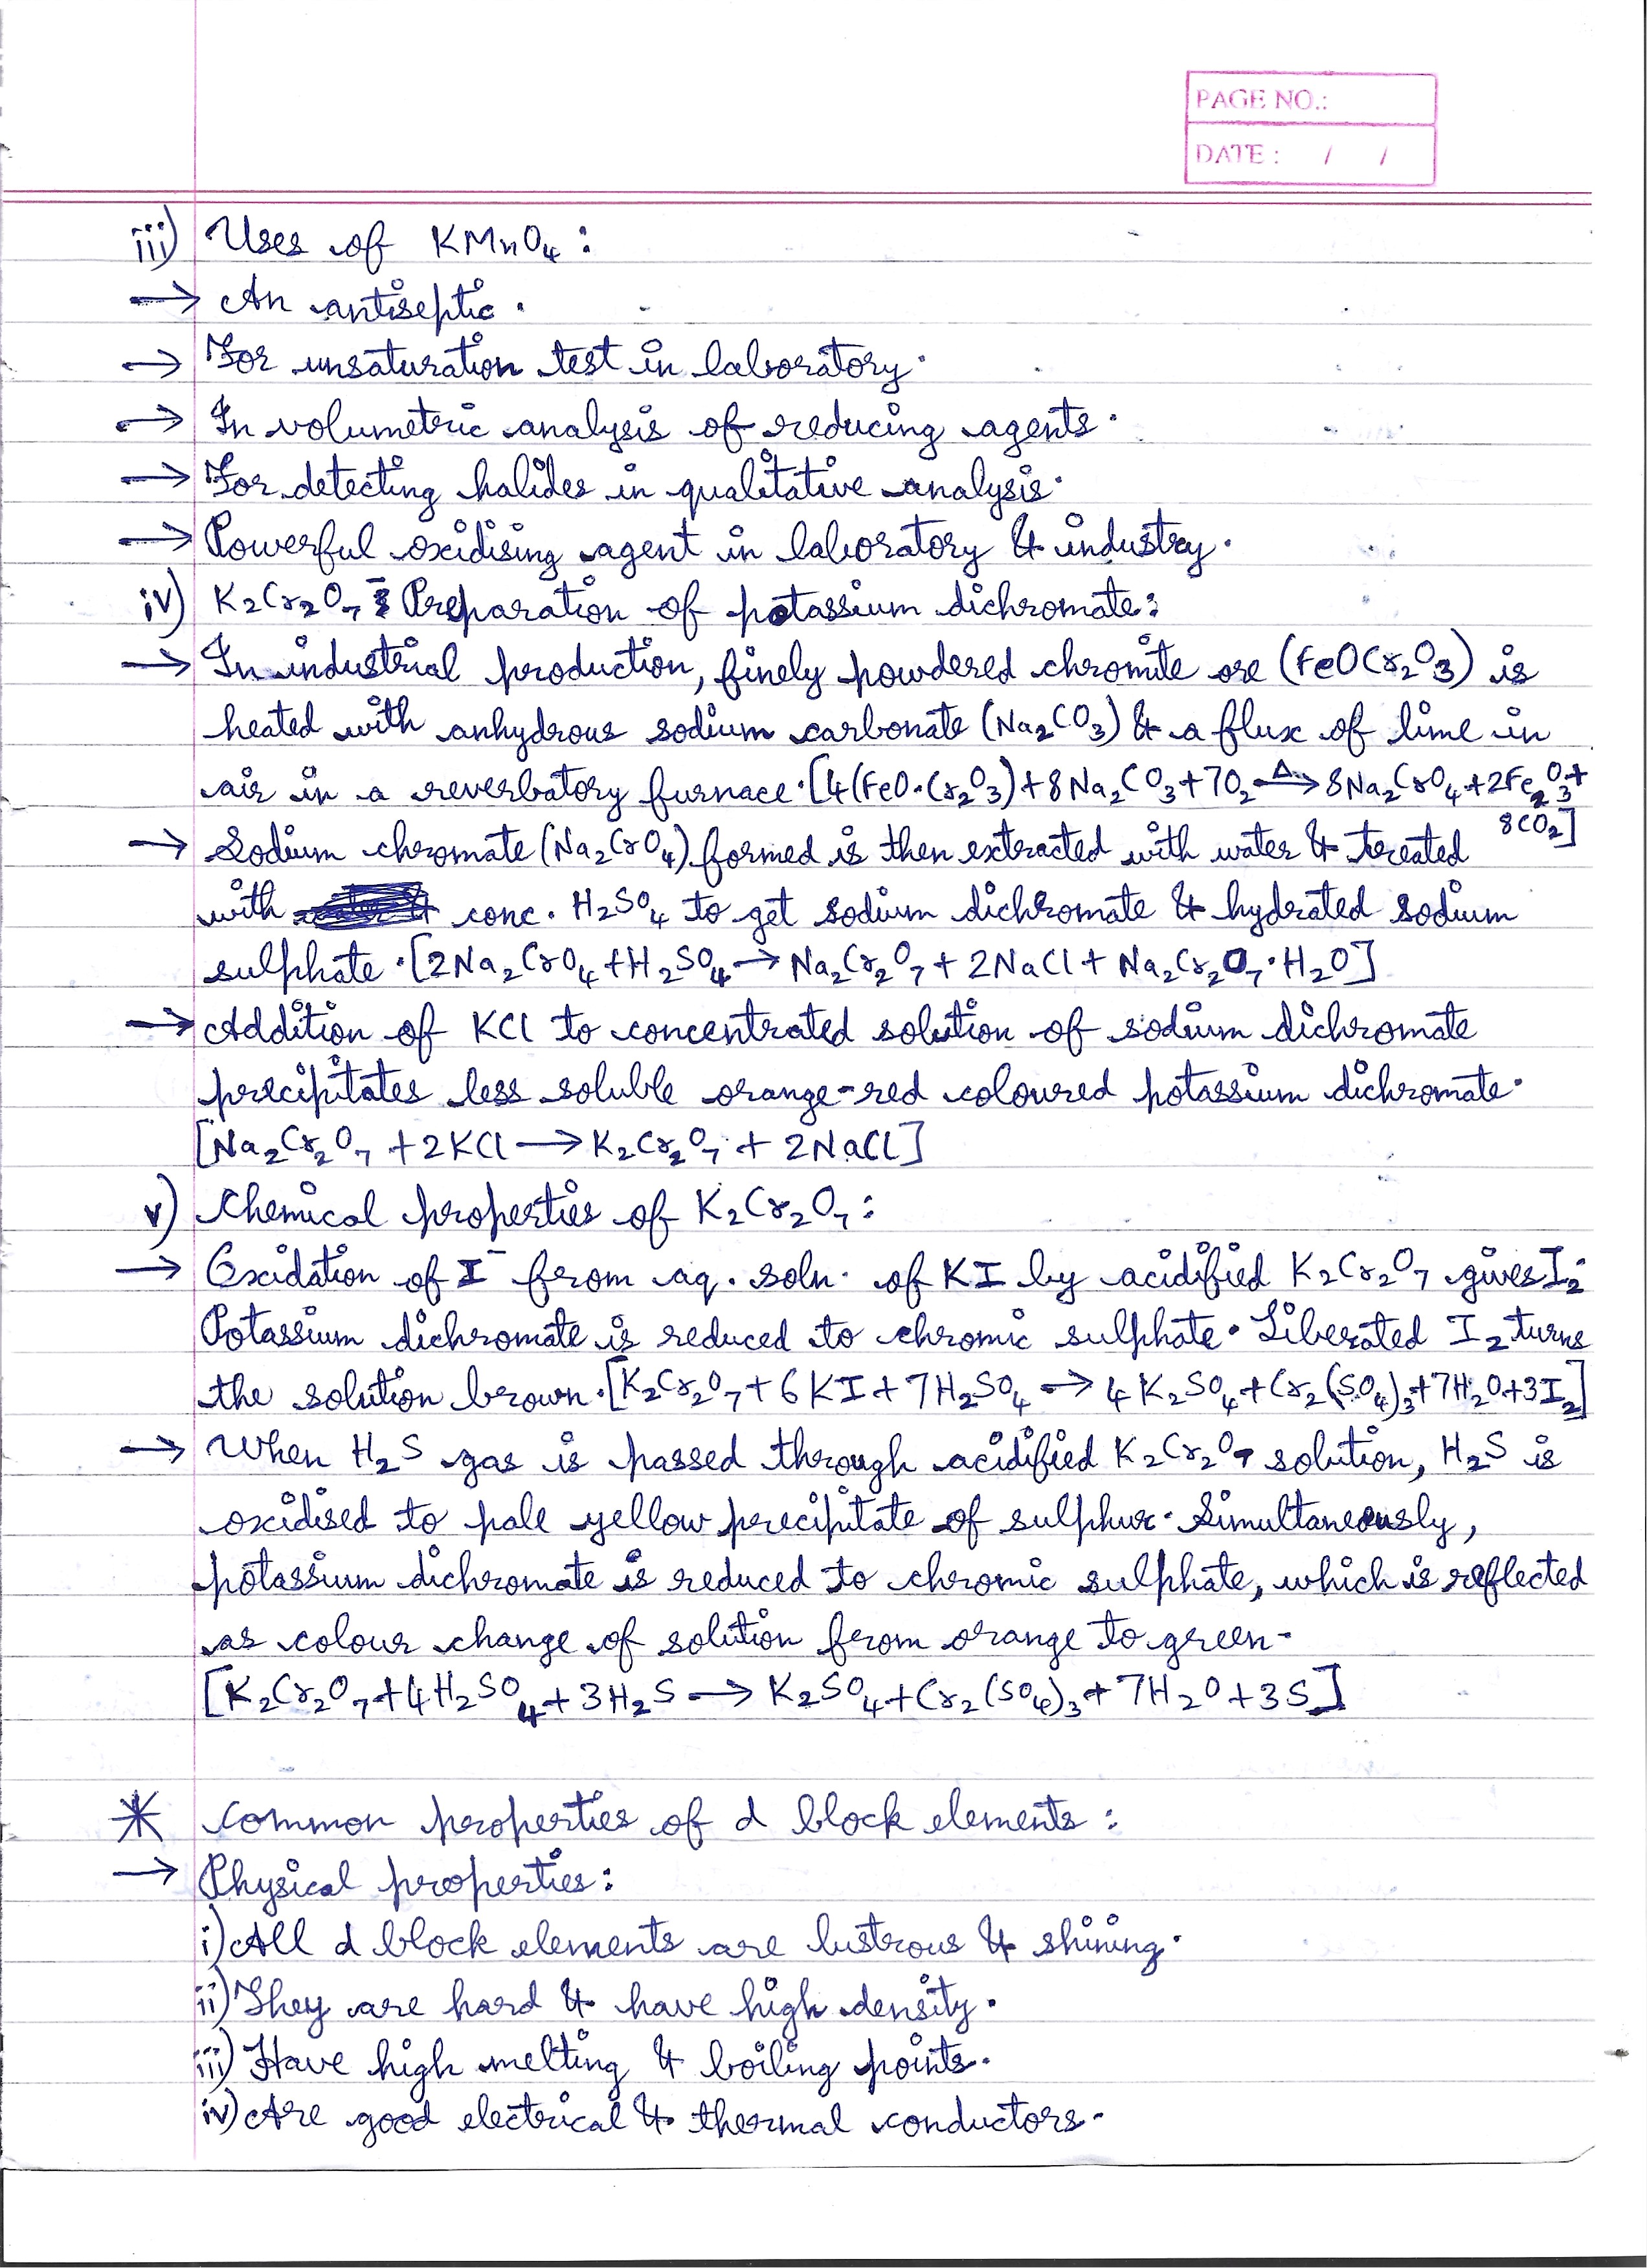 PAGE NO.:
DATE : / /
iii) Uses of KMnO4 :
→ An antiseptic.
→ For unsaturation test in laboratory.
→ In volumetric analysis of reducing agents.
→ For detecting halides in qualitative analysis.
→ Powerful oxidising agent in laboratory & industry.
iv) K2Cr2O7 : Preparation of potassium dichromate:
→ In industrial production, finely powdered chromite ore (FeOCr2O3) is
heated with anhydrous sodium carbonate (Na2CO3) & a flux of lime in
air in a reverbatory furnace. [4(FeO.Cr2O3)+8Na2CO3+7O2 –Δ→ 8Na2CrO4+2Fe2O3+
8CO2]
→ Sodium chromate (Na2CrO4) formed is then extracted with water & treated
with conc. H2SO4 to get sodium dichromate & hydrated sodium
sulphate. [2Na2CrO4+H2SO4 → Na2Cr2O7 + 2NaCl + Na2Cr2O7.H2O]
→ Addition of KCl to concentrated solution of sodium dichromate
precipitates less soluble orange-red coloured potassium dichromate.
[Na2Cr2O7 + 2KCl → K2Cr2O7 + 2NaCl]
v) Chemical properties of K2Cr2O7 :
→ Oxidation of I⁻ from aq. soln. of KI by acidified K2Cr2O7 gives I2.
Potassium dichromate is reduced to chromic sulphate. Liberated I2 turns
the solution brown. [K2Cr2O7+6KI+7H2SO4 → 4K2SO4+Cr2(SO4)3+7H2O+3I2]
→ When H2S gas is passed through acidified K2Cr2O7 solution, H2S is
oxidised to pale yellow precipitate of sulphur. Simultaneously,
potassium dichromate is reduced to chromic sulphate, which is reflected
as colour change of solution from orange to green.
[K2Cr2O7+4H2SO4+3H2S → K2SO4+Cr2(SO4)3+7H2O+3S]
* Common properties of d block elements :
→ Physical properties :
i) All d block elements are lustrous & shining.
ii) They are hard & have high density.
iii) Have high melting & boiling points.
iv) Are good electrical & thermal conductors.